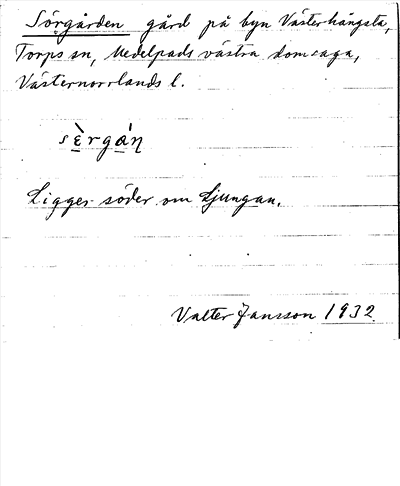 Sörgården gård på byn Västerhångsta,
Torps sn, Medelpads västra domsaga,
Västernorrlands l.
sèrgáη
Ligger söder om Ljungan.
Valter Jansson 1932.